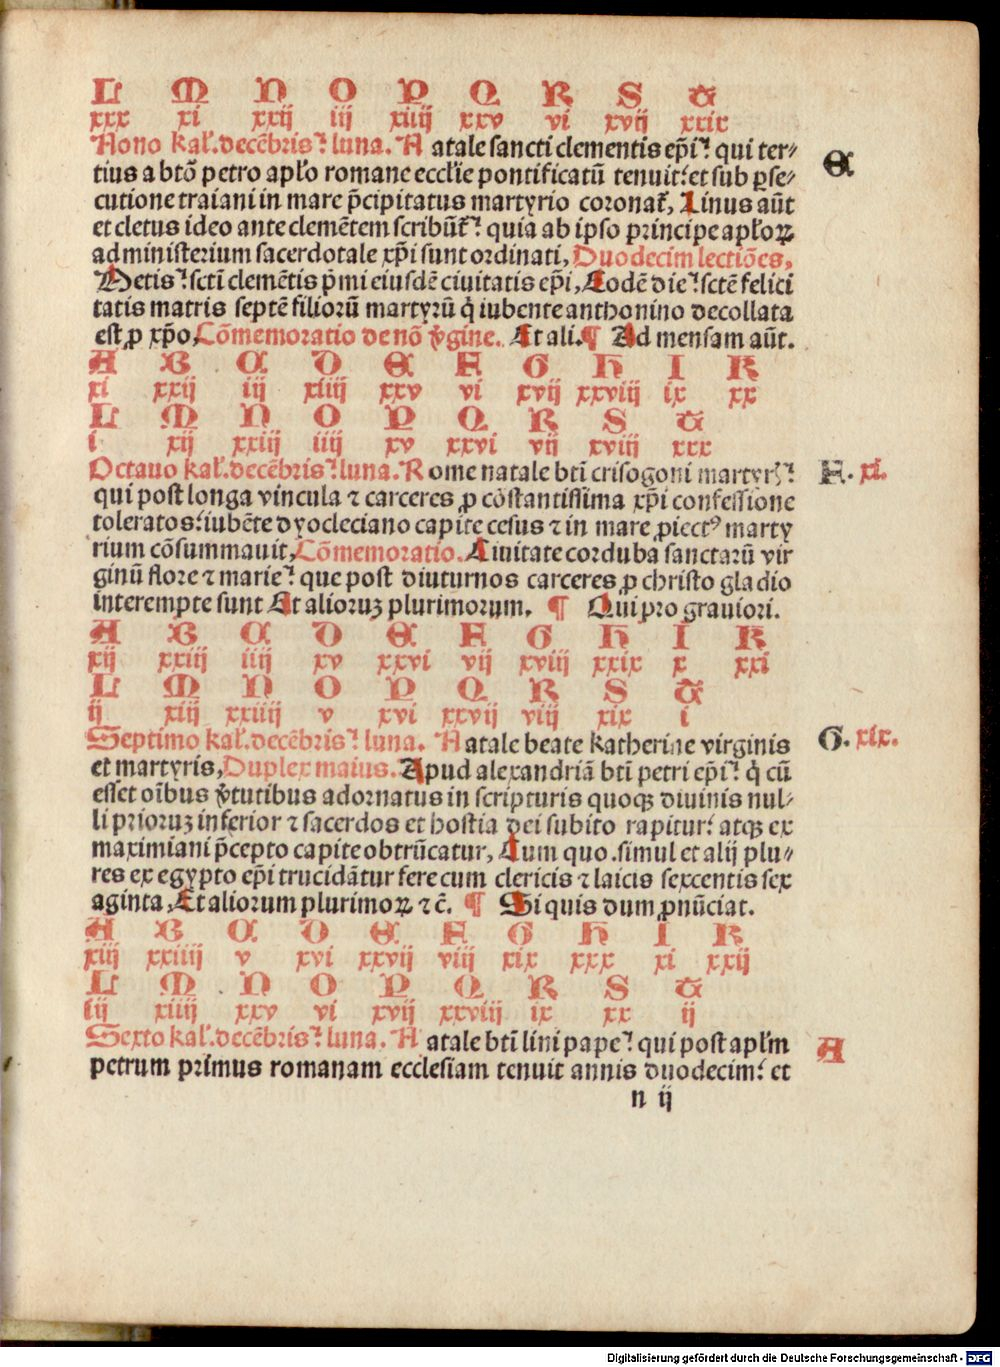 L M N O P Q R S T
xxx xi xxij iij xiiij xxv vi xvij xxix
Nono kal̕.decēbris ⁊ luna. N atale sancti clementis ep̄i ⁊ qui ter⸗
tius a btō petro apl̕o romane eccl̕ie pontificatū tenuit: et sub ꝑse⸗
cutione traiani in mare p̄cipitatus martyrio coronat̕, Linus aūt
et cletus ideo ante clemētem scribūt̕ ⁊ quia ab ipso principe apl̕oꝝ
ad ministerium sacerdotale xp̄i sunt ordinati, Duodecim lectiōes,
Metis ⁊ scti clemētis p̄mi eiusdē ciuitatis ep̄i, Eodē die ⁊ sctē felici
tatis matris septē filiorū martyrū q̇ iubente anthonino decollata
est ꝓ xp̄o, Cōmemoratio de nō v̄gine. Et ali. ¶ Ad mensam aūt.
A B C D E F G H I K
xi xxij iij xiiij xxv vi xvij xxviij ix xx
L M N O P Q R S T
i xij xxiij iiij xv xxvi vij xviij xxx
Octauo kal̕.decēbris ⁊ luna. R ome natale bti̅ crisogoni martyr̕ ⁊
qui post longa vincula ⁊ carceres ꝓ cōstantissima xp̄i confessione
toleratos: iubēte dyocleciano capite cesus ⁊ in mare ꝓiectꝰ marty
rium cōsummauit, Cōmemoratio. Ciuitate corduba sanctarū vir
ginū flore ⁊ marie ⁊ que post diuturnos carceres ꝓ christo gladio
interempte sunt Et alioruꝫ plurimorum. ¶ Qui pro grauiori.
A B C D E F G H I K
xij xxiij iiij xv xxvi vij xviij xxix x xxi
L M N O P Q R S T
ij xiij xxiiij v xvi xxvij viij xix i
Septimo kal̕.decēbris ⁊ luna. N atale beate katherine virginis
et martyris, Duplex maius. Apud alexandriā bti̅ petri ep̄i ⁊ q̇ cū
esset oi̅bus v̄tutibus adornatus in scripturis quoqꝫ diuinis nul⸗
li prioruꝫ inferior ⁊ sacerdos et hostia dei subito rapitur: atqꝫ ex
maximiani p̄cepto capite obtrūcatur, Cum quo .simul et alij plu⸗
res ex egypto ep̄i trucidātur fere cum clericis ⁊ laicis sexcentis sex
aginta, Et aliorum plurimoꝝ ⁊ c̄. ¶ Si quis dum ꝓnūciat.
A B C D E F G H I K
xiij xxiiij v xvi xxvij viij xix xxx xi xxij
L M N O P Q R S T
iij xiiij xxv vi xvij xxviij ix xx ij
Sexto kal̕.decēbris ⁊ luna. N atale bti̅ lini pape ⁊ qui post apl̕m
petrum primus romanam ecclesiam tenuit annis duodecim: et
n ij
E
F. xi.
G. xix.
A
Digitalisierung gefördert durch die Deutsche Forschungsgemeinschaft - DFG